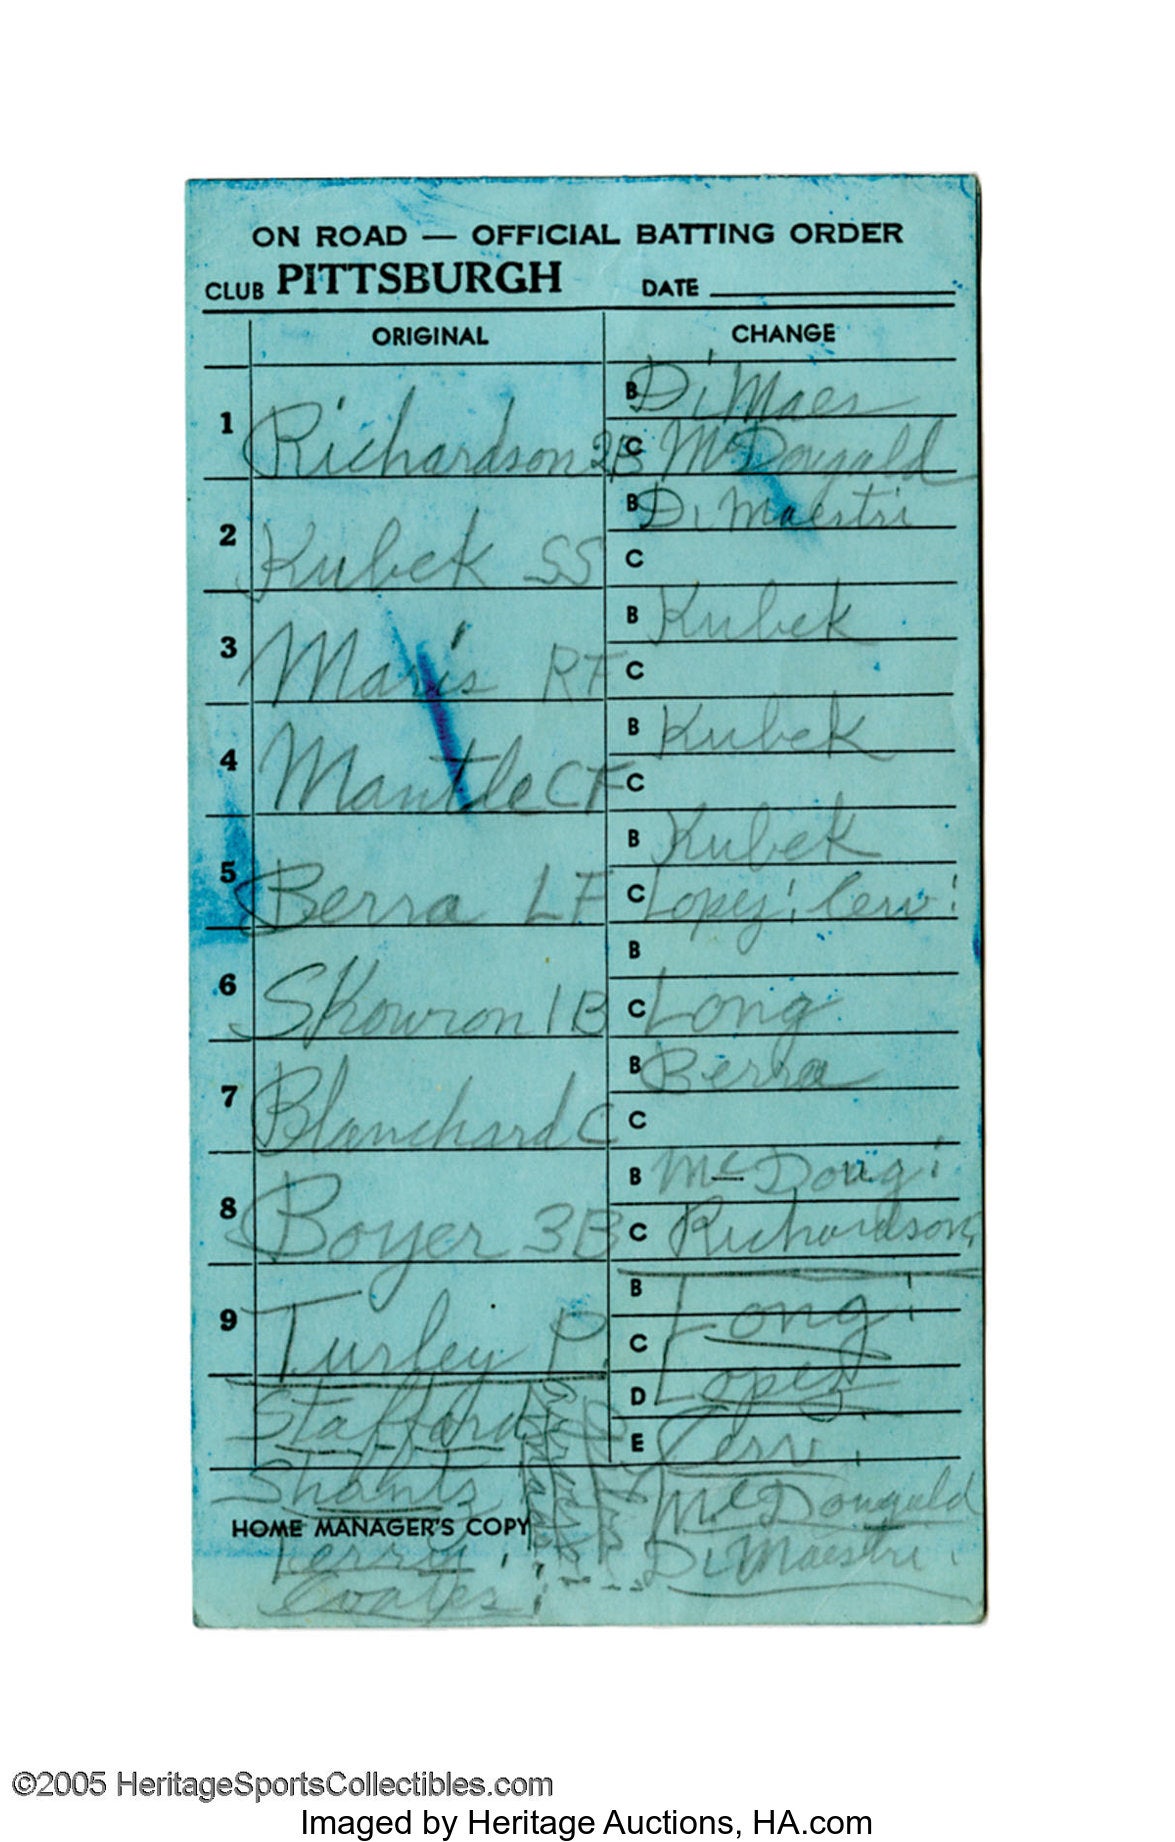 ON ROAD — OFFICIAL BATTING ORDER
CLUB PITTSBURGH DATE
ORIGINAL CHANGE
1 Richardson 2B
B Di Maes
C McDougald
2 Kubek SS
B Di Maestri
C
3 Maris RF
B Kubek
C
4 Mantle CF
B Kubek
C
5 Berra LF
B Kubek
C Lopez; Cerv;
6 Skowron 1B
B
C Long
7 Blanchard C
B Berra
C
8 Boyer 3B
B McDoug;
C Richardson
9 Turley P.
B Long
C
D Lopez
E Cerv.
Stafford
Shantz
McDougald
HOME MANAGER'S COPY
Terry
Di Maestri
Coates
©2005 HeritageSportsCollectibles.com
Imaged by Heritage Auctions, HA.com